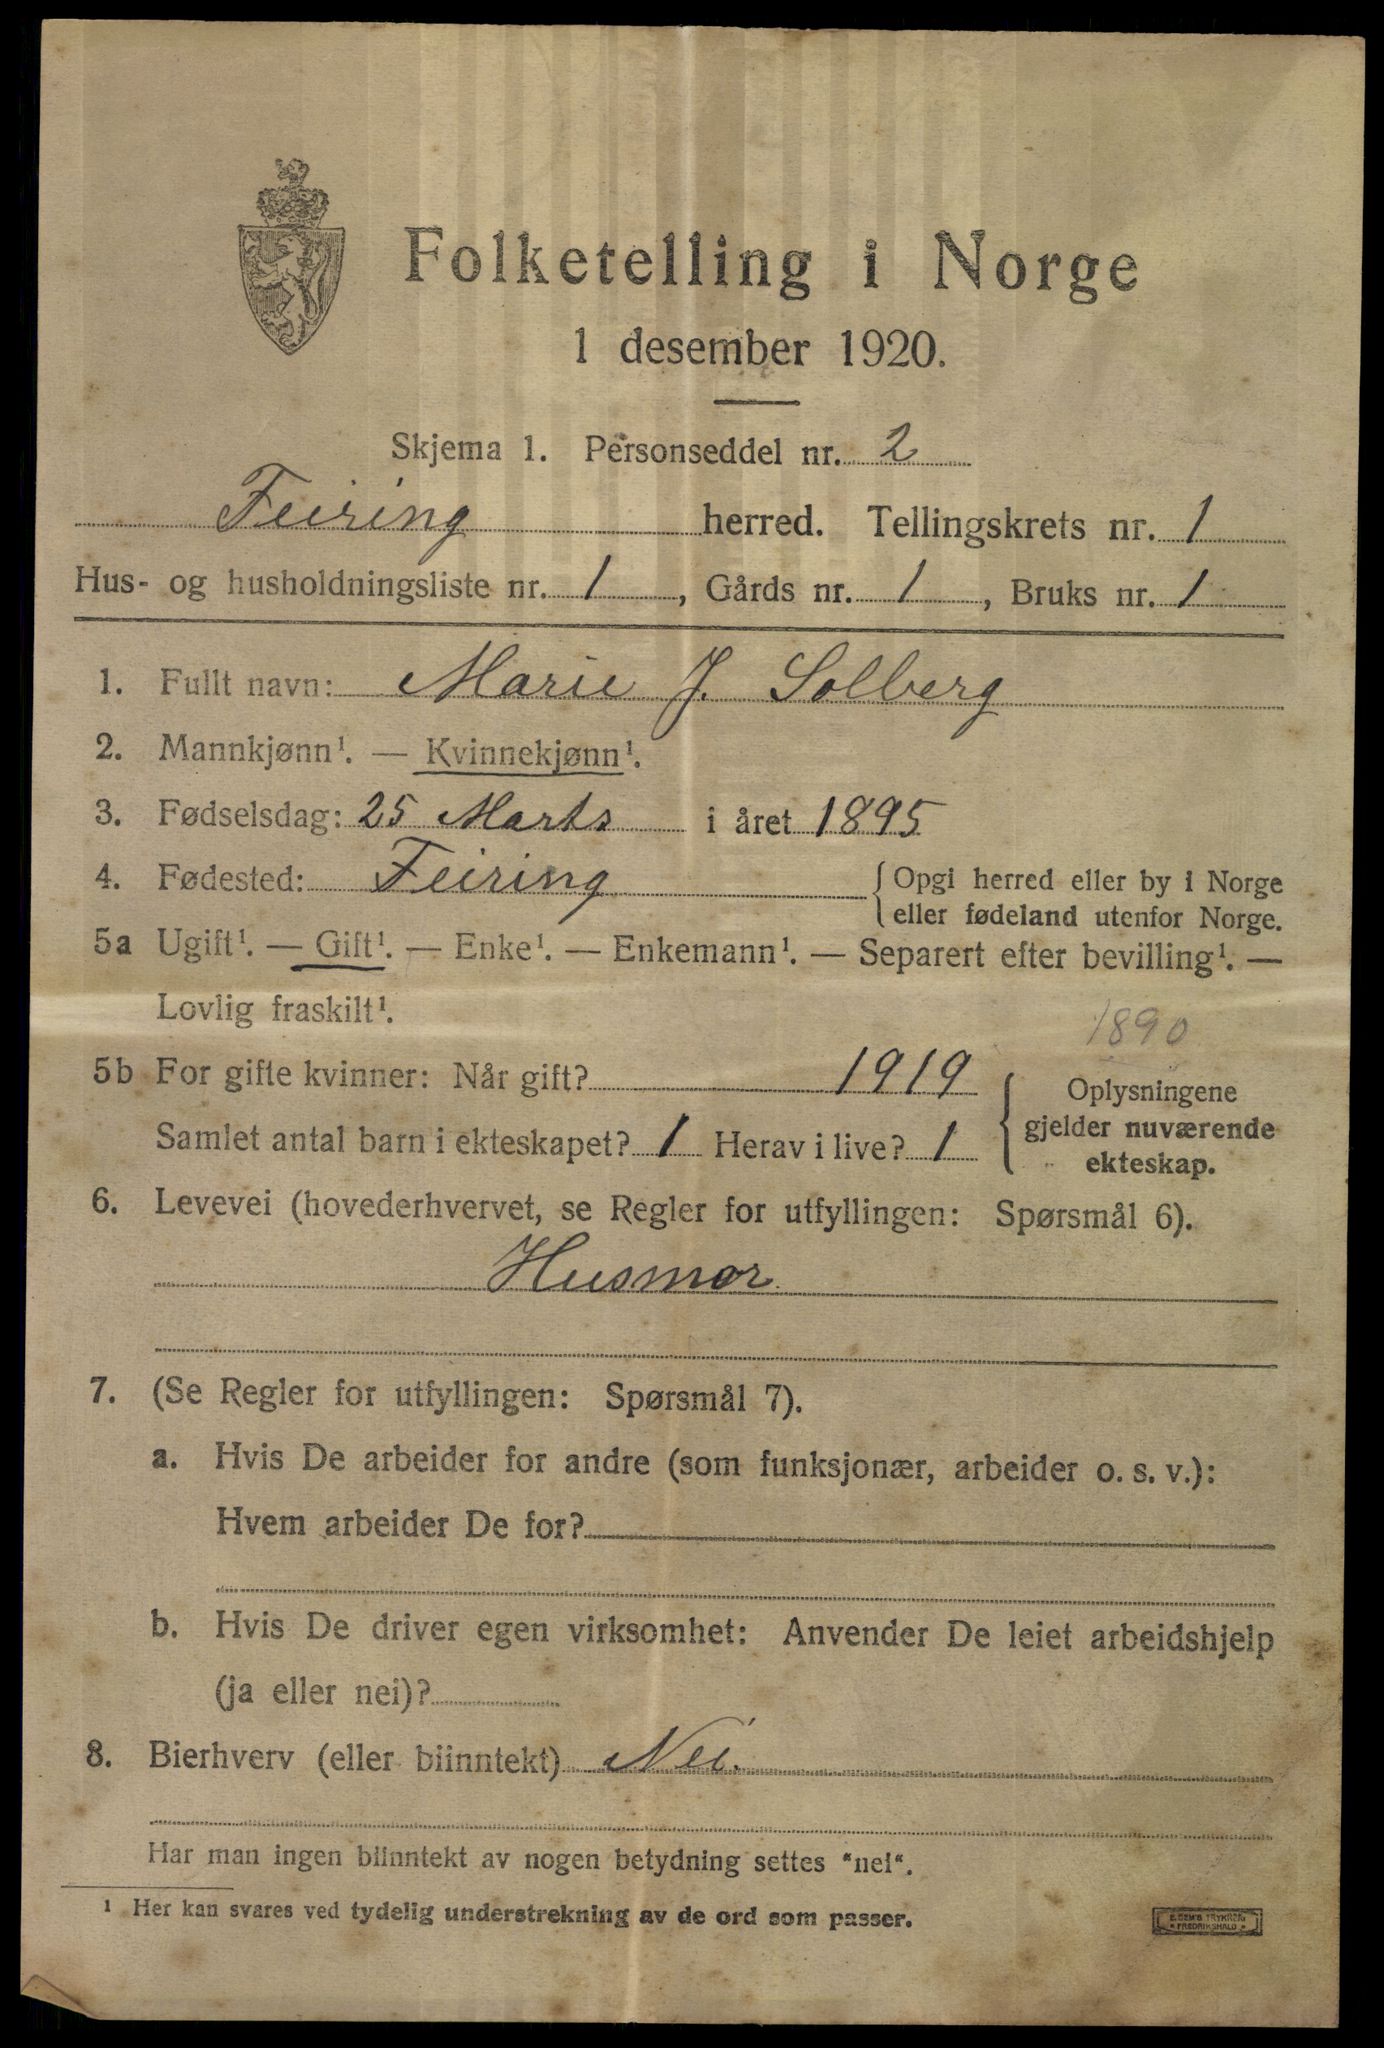 Folketelling i Norge
1 desember 1920.
Skjema 1. Personseddel nr. 2
Feiring herred. Tellingskrets nr. 1
Hus- og husholdningsliste nr. 1, Gårds nr. 1, Bruks nr. 1
1. Fullt navn: Marie J. Solberg
2. Mannkjønn¹. — Kvinnekjønn¹.
3. Fødselsdag: 25 Marts i året 1895
4. Fødested: Feiring { Opgi herred eller by i Norge
eller fødeland utenfor Norge.
5a Ugift¹. — Gift¹. — Enke¹. — Enkemann¹. — Separert efter bevilling¹. —
Lovlig fraskilt¹.
1890
5b For gifte kvinner: Når gift? 1919
Samlet antal barn i ekteskapet? 1 Herav i live? 1
{ Oplysningene
gjelder nuværende
ekteskap.
6. Levevei (hovederhvervet, se Regler for utfyllingen: Spørsmål 6).
Husmor
7. (Se Regler for utfyllingen: Spørsmål 7).
a. Hvis De arbeider for andre (som funksjonær, arbeider o. s. v.):
Hvem arbeider De for?
b. Hvis De driver egen virksomhet: Anvender De leiet arbeidshjelp
(ja eller nei)?
8. Bierhverv (eller biinntekt) Nei.
Har man ingen biinntekt av nogen betydning settes "nei".
¹ Her kan svares ved tydelig understrekning av de ord som passer.
FREDRIKSHALD